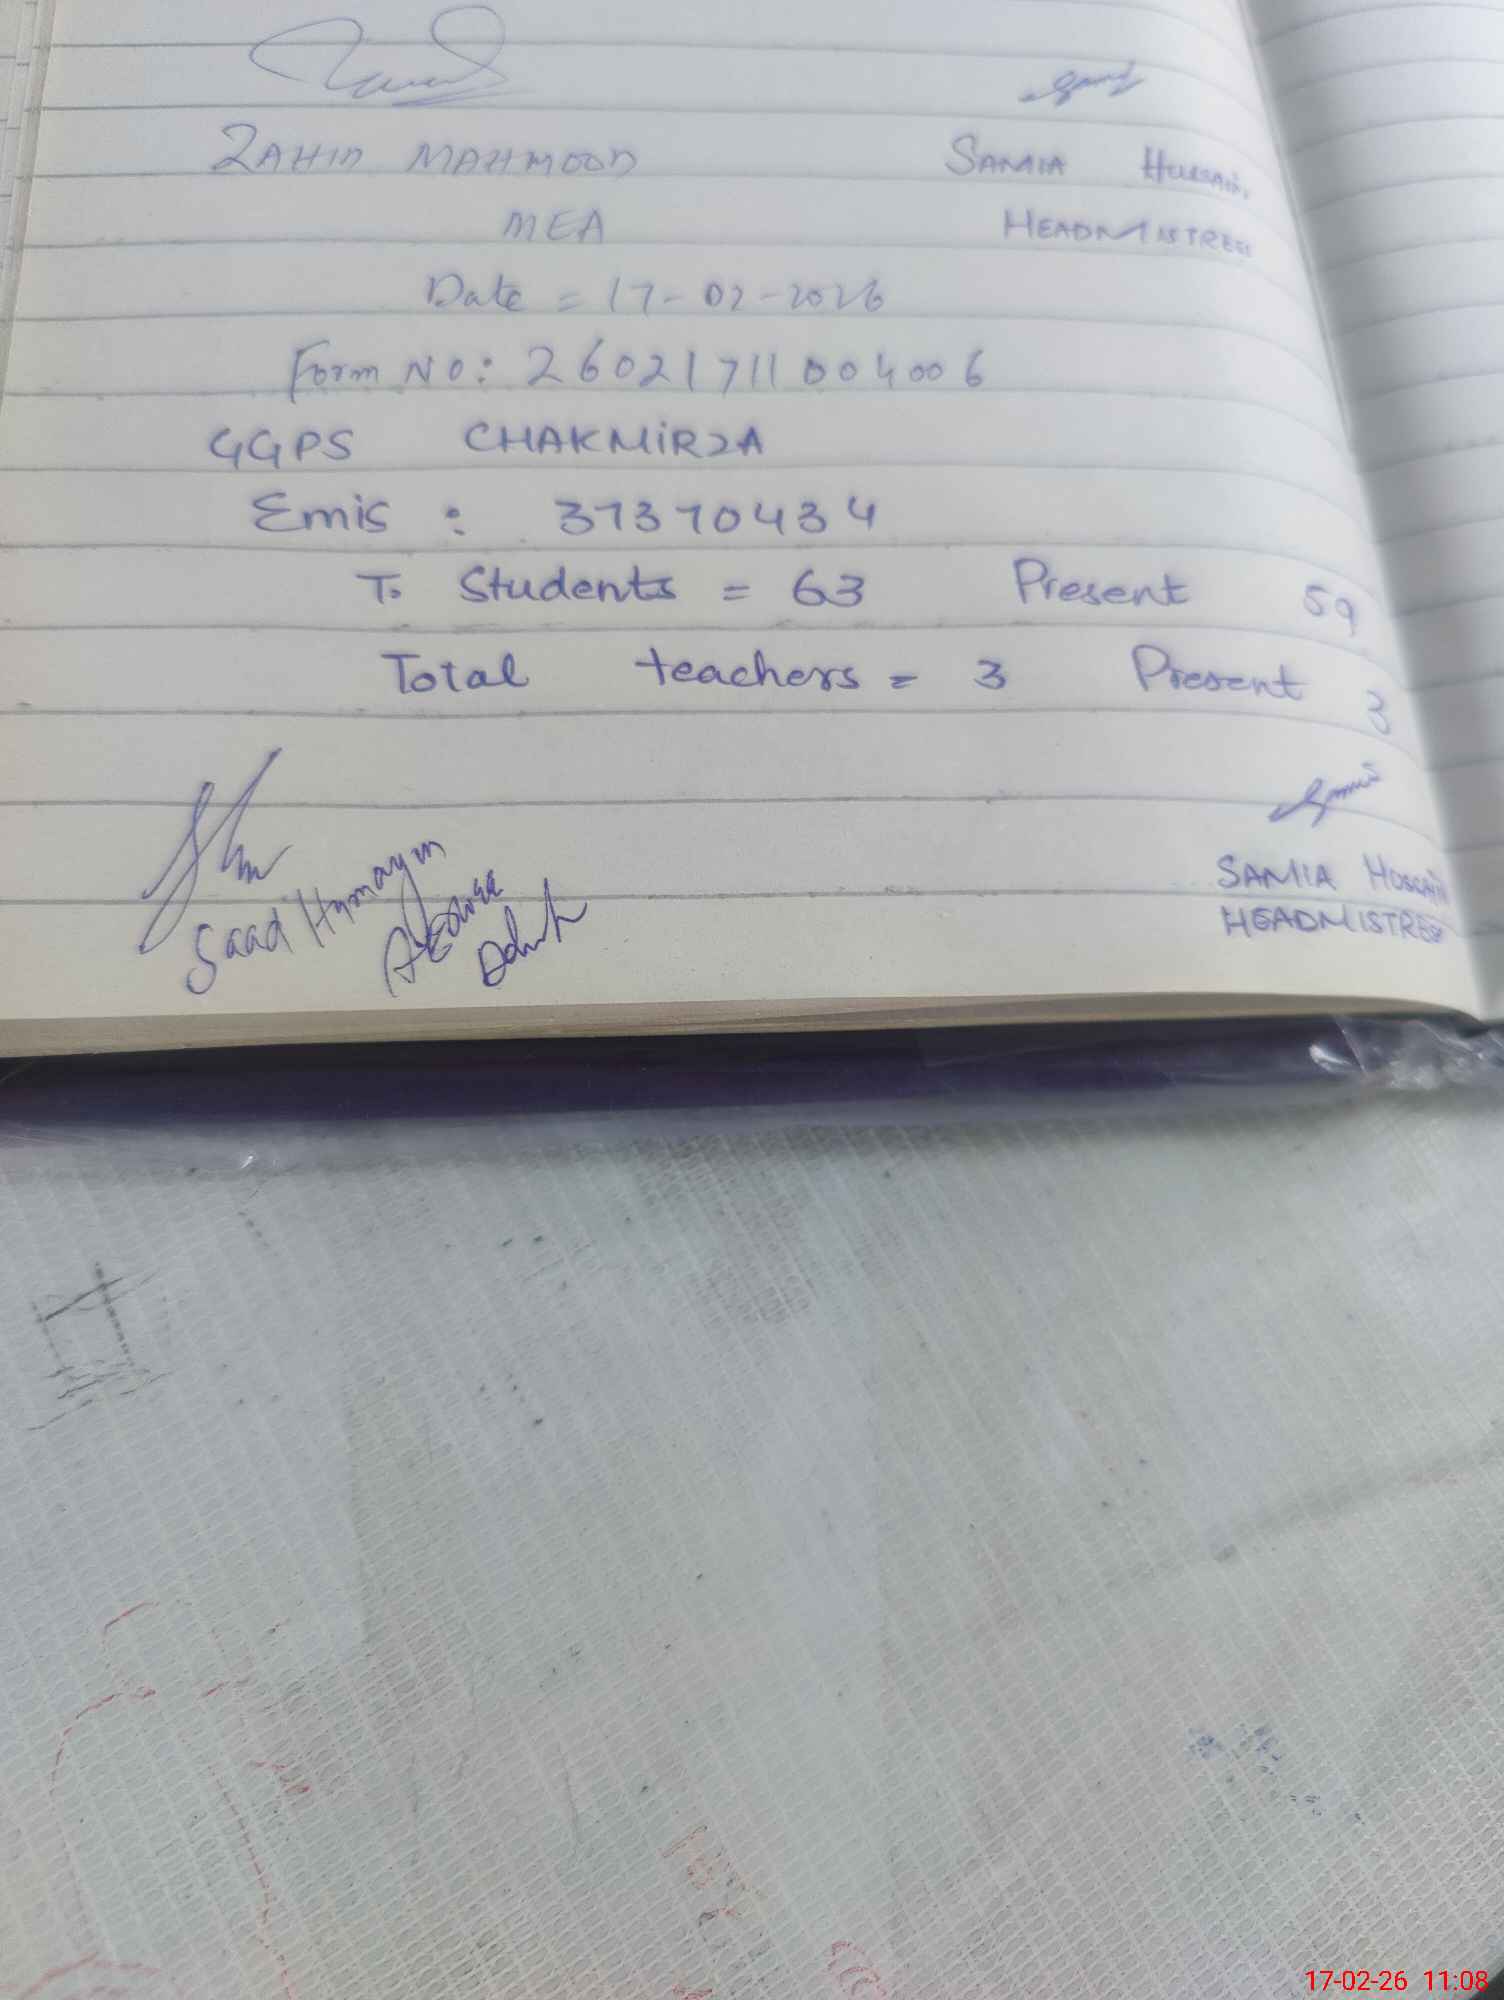 ZAHID MAHMOOD SAMIA HUSSAIN.
MEA HEADMISTRESS
Date = 17-02-2026
Form NO: 26021711004006
GGPS CHAKMIRZA
Emis : 37370434
T. Students = 63 Present 59
Total teachers = 3 Present 3
Saad Humayun
SAMIA HUSSAIN
HEADMISTRESS
17-02-26 11:08